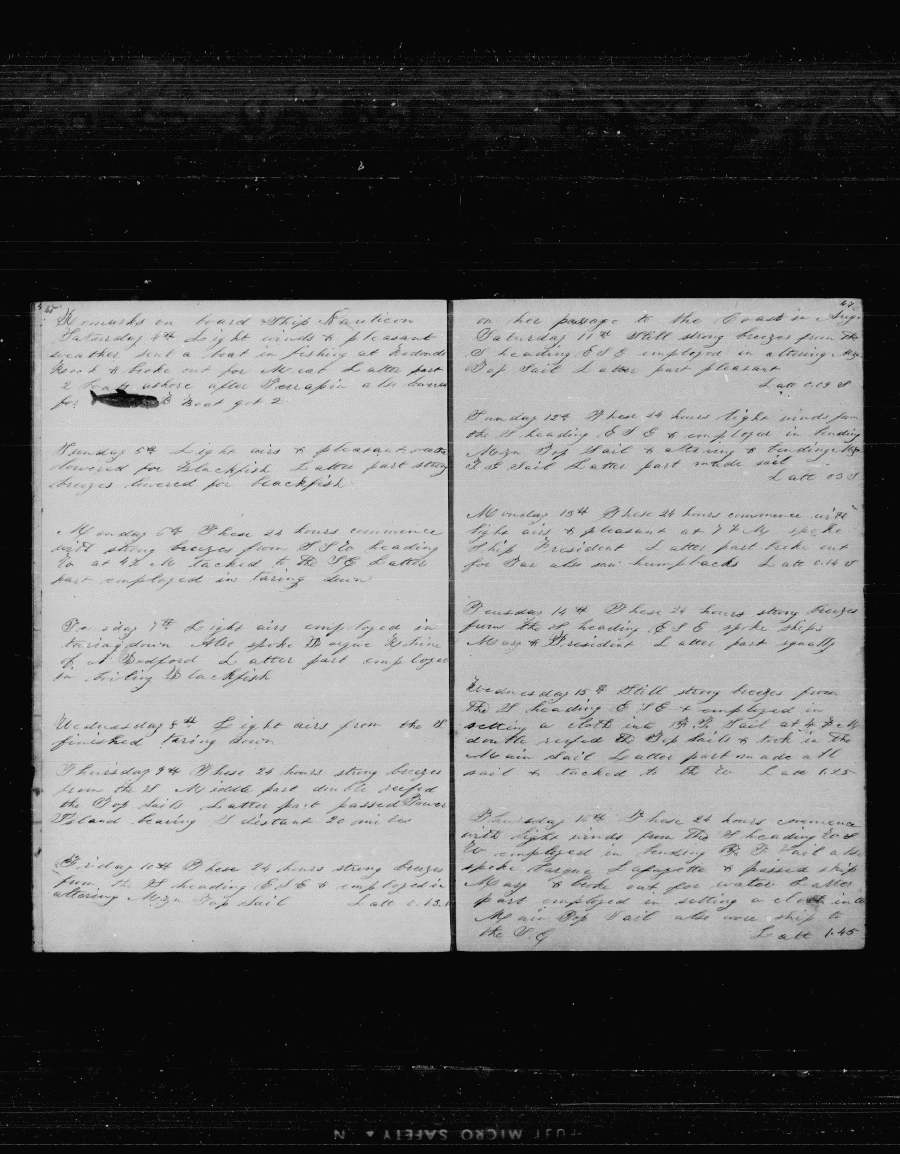 Remarks on board Ship Nauticon
Saturday 4th Light winds & pleasant
weather sent a boat in fishing at Redondo
Rock & broke out for Meal Latter part
2 boats ashore after Terrapin also lowered
for B Boat got 2
Sunday 5th Light airs & pleasant
lowered for Blackfish Latter part strong
breezes lowered for blackfish
Monday 6th These 24 hours commence
with strong breezes from SS W heading
W at 4 M tacked to the SE Latter
part employed in taring down
Tuesday 7th Light airs employed in
taring down Also spoke
of N Bedford Latter part employed
in boiling Blackfish
Wednesday 8th Light airs from the S
finished taring down
Thursday 9th These 24 hours strong breezes
from the S Middle part double reefed
the Top Sails Latter part passed Tower
Island bearing S distant 20 miles
Friday 10th These 24 hours strong breezes
from the S heading ESE & employed in
altering Mizn Top Sail Latt 0.13
47
on her passage to the Coast in Augs
Saturday 11th Still strong breezes from the
S heading ESE employed in altering Mizn
Top Sail Latter part pleasant
Latt 0.09 S
Sunday 12th These 24 hours light winds from
the S heading ESE & employed in bending
Mizn Top Sail & altering & bending Mizn
Sail Latter part made sail
Latt 03 S
Monday 13th These 24 hours commence with
light airs & pleasant at 7 M spoke
Ship President Latter part broke out
for Tar also saw humpbacks Latt 0.14 S
Tuesday 14th These 24 hours strong breezes
from the S heading ESE spoke ships
Mary & President Latter part squally
Wednesday 15th Still strong breezes from
the S heading ESE & employed in
setting a cloth into Sail at 4 P M
double reefed the Top Sails & took in the
Main Sail Latter part made all
sail & tacked to the W Latt 1.25
Thursday 16th These 24 hours commence
with light winds from the S heading W S
W employed in bending Sail also
spoke Barque Lafayette & passed ship
Mary & broke out for water Latter
part employed in setting a cloth into
Main Top Sail also wore ship to
the S.E Latt 1.45
FUJI MICRO SAFETY ▲ N